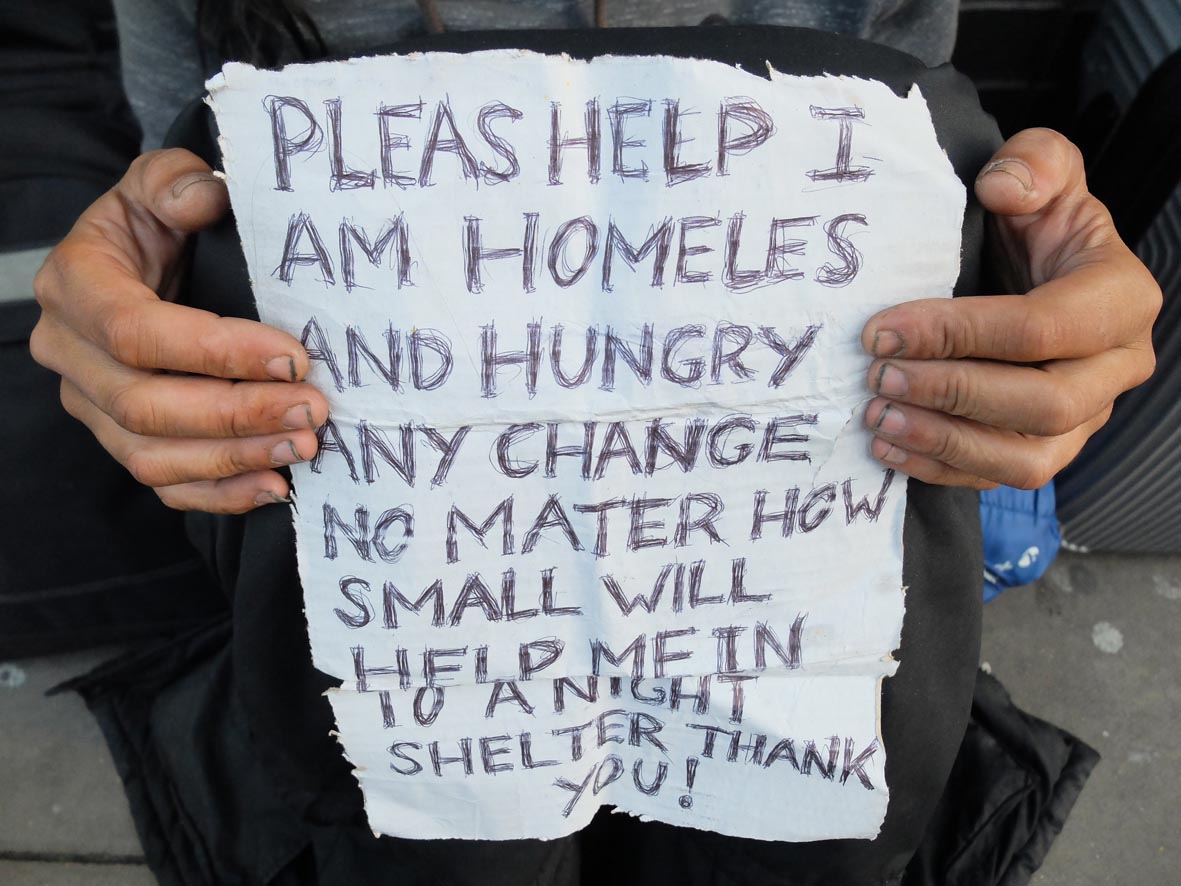 PLEAS HELP I
AM HOMELES
AND HUNGRY
ANY CHANGE
NO MATER HOW
SMALL WILL
HELP ME IN
TO A NIGHT
SHELTER THANK
YOU!